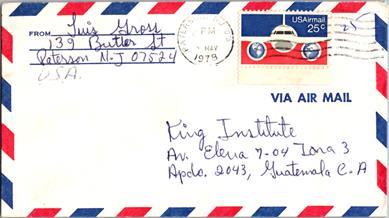 FROM Luis Gross
139 Butler St
Paterson N-J 07524
USA.
PATERSON
PM
MAY
1978
USAirmail
25c
VIA AIR MAIL
King Institute
Av. Elena 7-04 Zona 3
Apdo. 2043, Guatemala C.A